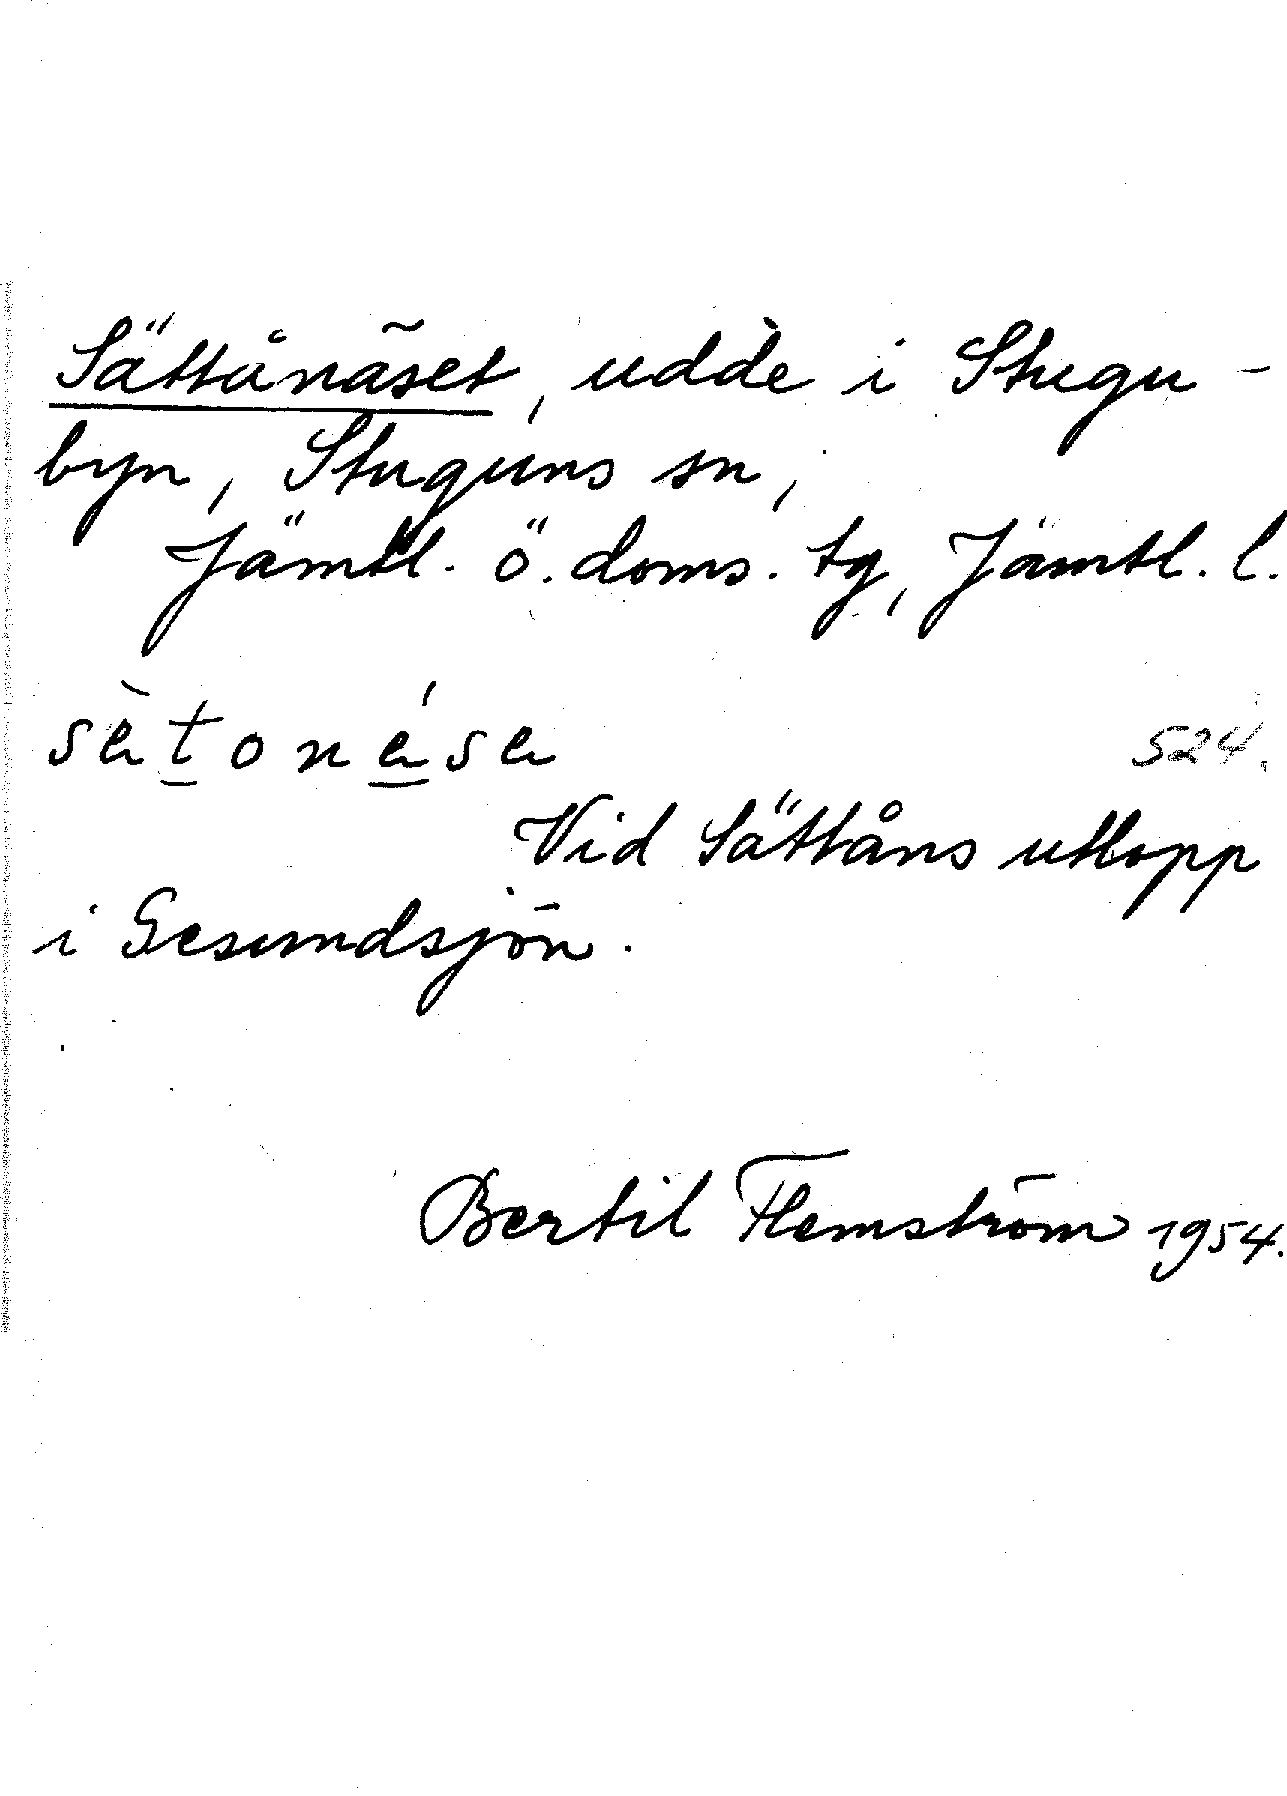 Sättånäset, udde i Stugu-
byn, Stuguns sn,
Jämtl. ö. doms. tg, Jämtl. l.
sètonése 524.
Vid Sättåns utlopp
i Gesundsjön.
Bertil Flemström 1954.